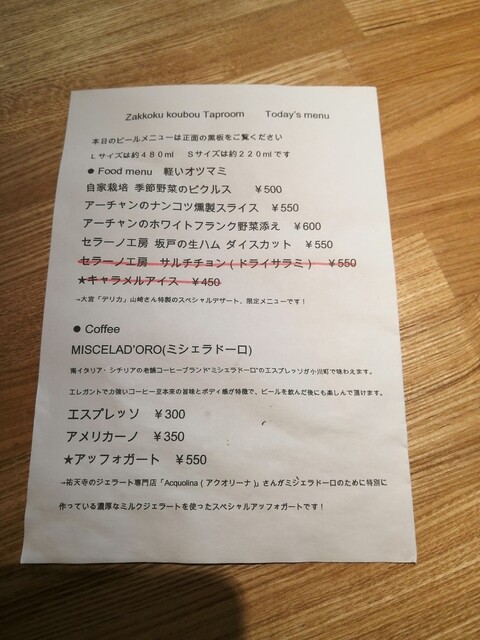 Zakkoku koubou Taproom Today's menu
本日のビールメニューは正面の黒板をご覧ください
Lサイズは約480ml Sサイズは約220mlです
● Food menu 軽いオツマミ
自家栽培 季節野菜のピクルス ¥500
アーチャンのナンコツ燻製スライス ¥550
アーチャンのホワイトフランク野菜添え ¥600
セラーノ工房 坂戸の生ハム ダイスカット ¥550
セラーノ工房 サルチチョン(ドライサラミ) ¥550
★キャラメルアイス ¥450
→大宮「デリカ」山崎さん特製のスペシャルデザート、限定メニューです!
● Coffee
MISCELAD'ORO(ミシェラドーロ)
南イタリア・シチリアの老舗コーヒーブランド"ミシェラドーロ"のエスプレッソが小川町で味わえます。
エレガントで力強いコーヒー豆本来の旨味とボディ感が特徴で、ビールを飲んだ後にも楽しんで頂けます。
エスプレッソ ¥300
アメリカーノ ¥350
★アッフォガート ¥550
→祐天寺のジェラート専門店「Acquolina(アクオリーナ)」さんがミシェラドーロのために特別に
作っている濃厚なミルクジェラートを使ったスペシャルアッフォガートです!